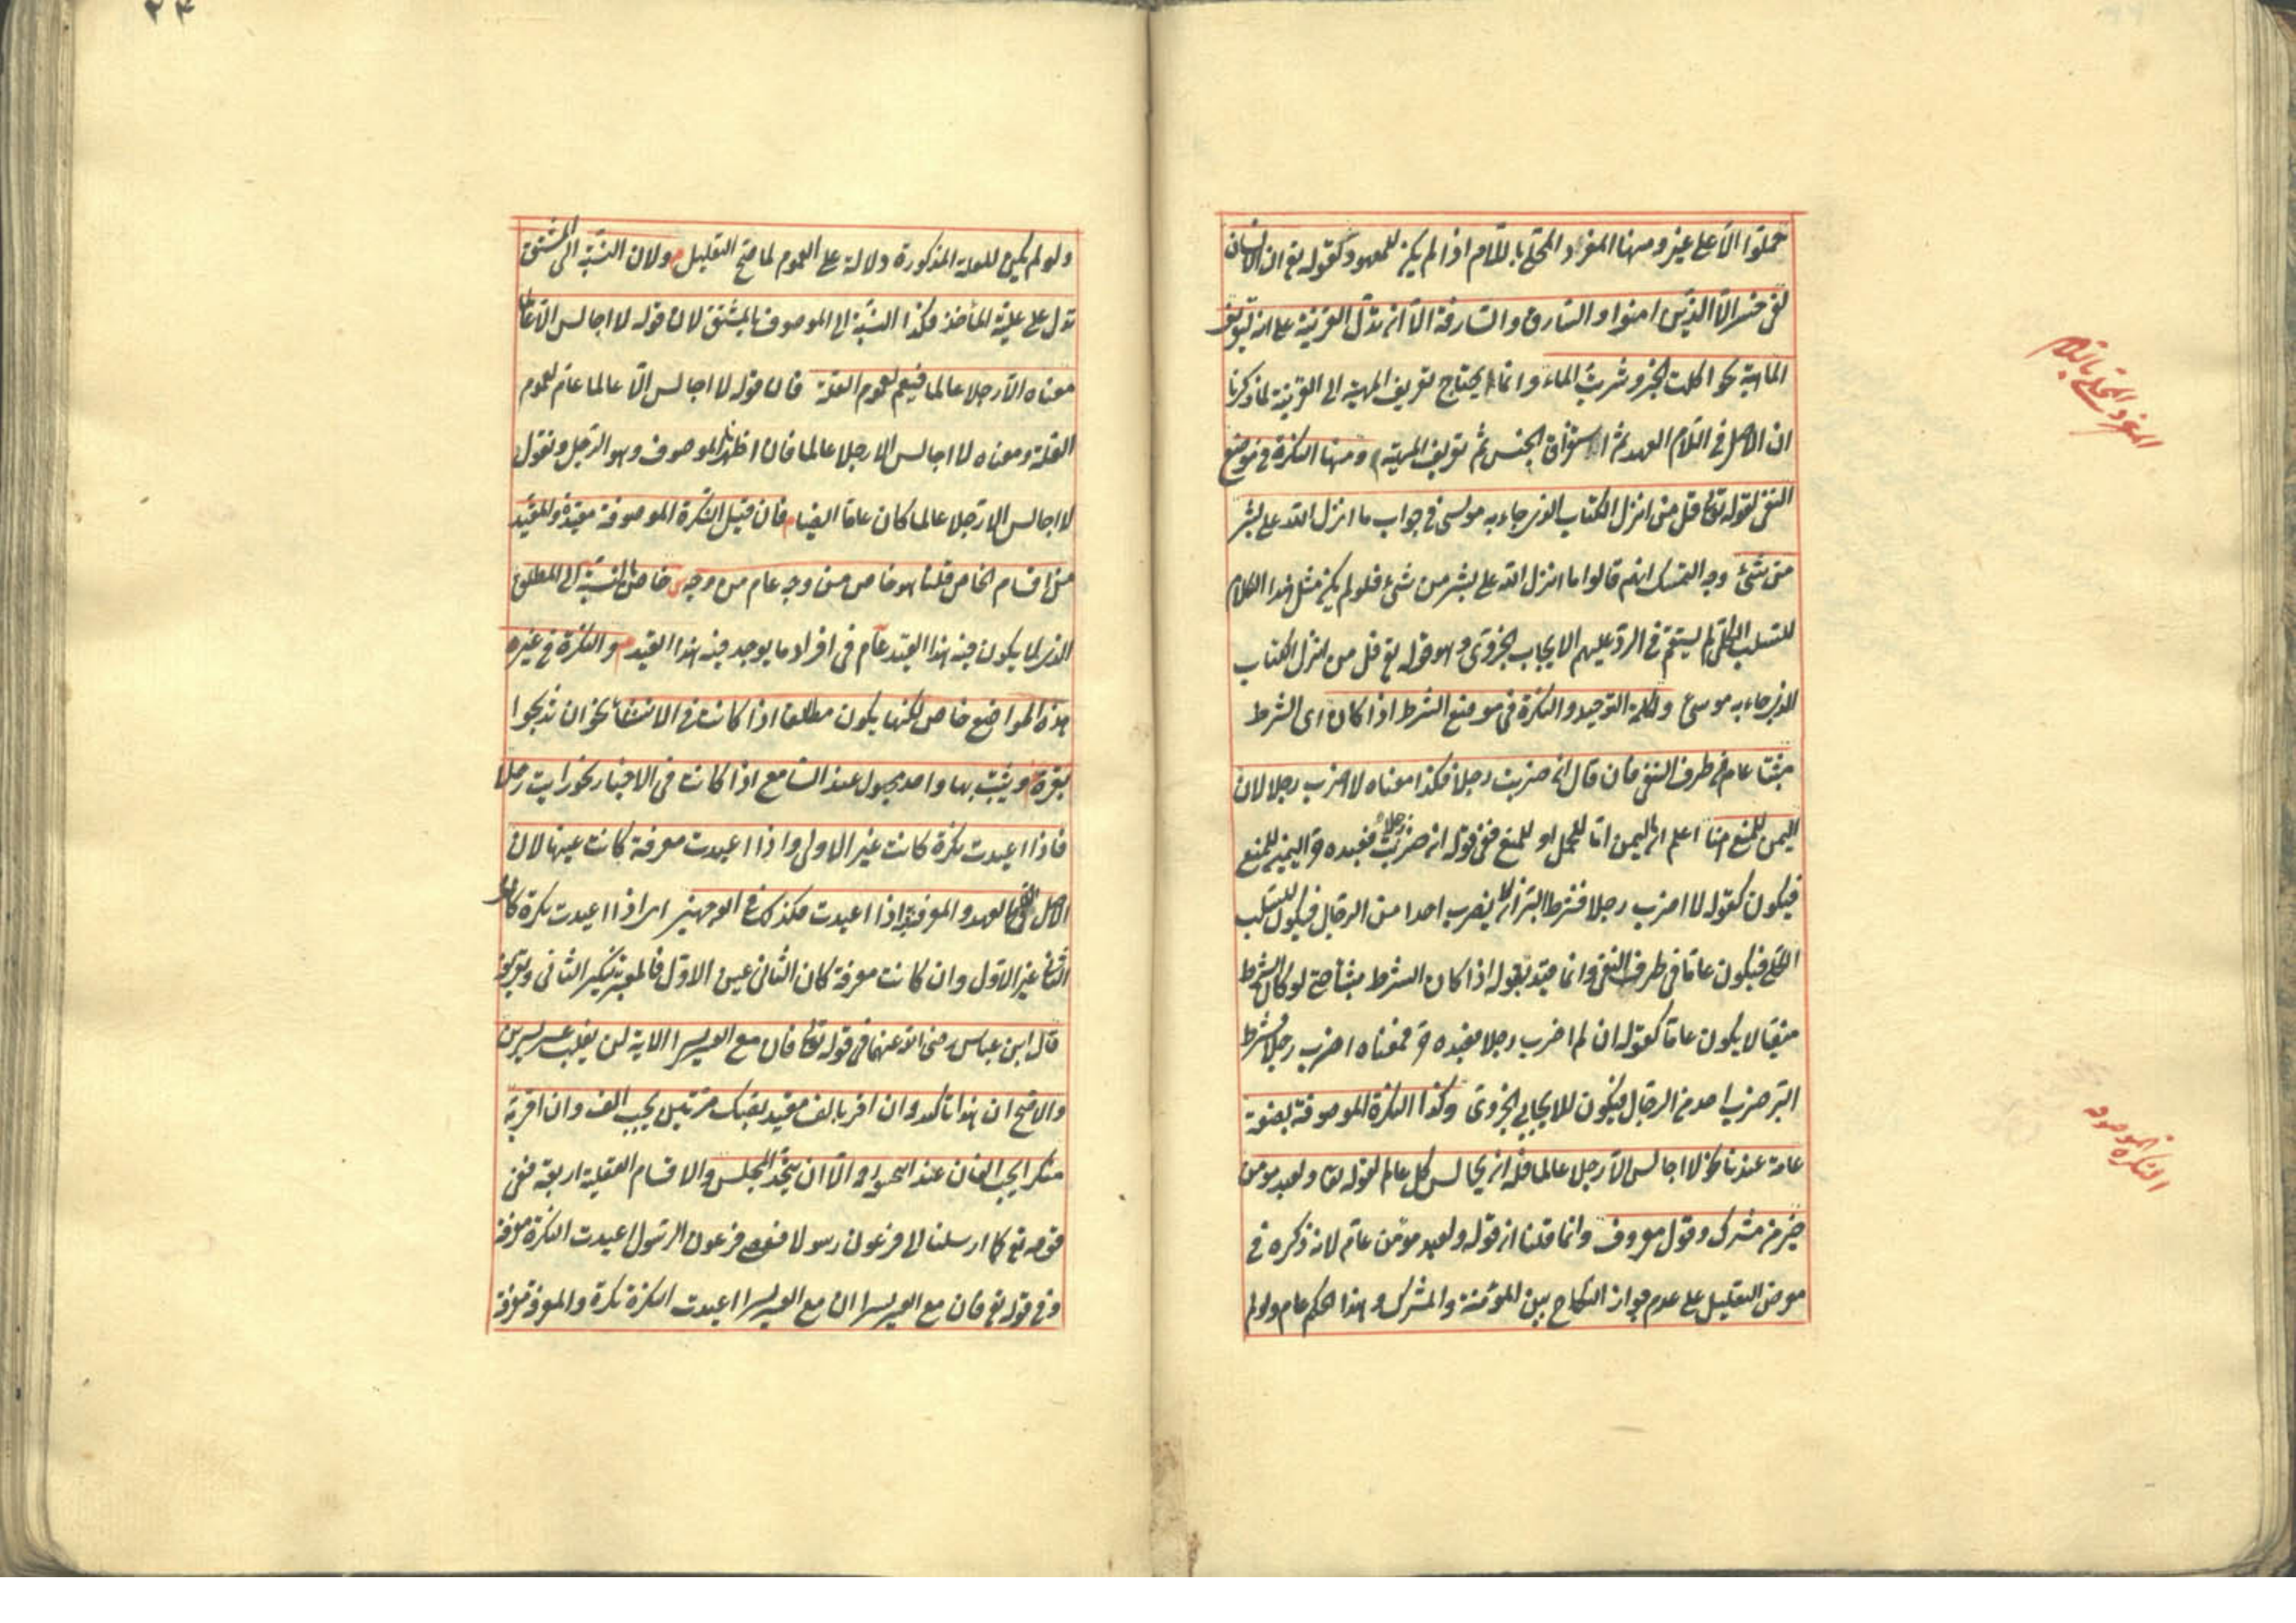 حملوا الا على غيره ومنها المفرد المحلى باللام اذا لم يكن للمعهود كقوله تع ان الانسان
لفى خسر الا الذين امنوا والسارق والسارقة الا ان تدل القرينة على انه لتعريف
الماهية نحو اكلت الخبز وشربت الماء وانما يحتاج تعريف المهية الى القرينة لما ذكرنا
ان الاصل فى اللام العهد ثم استغراق الجنس ثم تعريف المهية ومنها النكرة فى موضع
النفى لقوله تعالى قل من انزل الكتاب الذى جاء به موسى فى جواب ما انزل الله على بشر
من شئ وجه التمسك انهم قالوا ما انزل الله على بشر من شئ فلو لم يكن مثل هذا الكلام
للسلب الكلى لم يستقم فى الرد عليهم الايجاب الجزوى وهو قوله تع قل من انزل الكتاب
الذى جاء به موسى وكلمة التوحيد والنكرة فى موضع الشرط اذا كان اى الشرط
مثبتا عام فى طرف النفى فان قال ان ضربت رجلا فكذا معناه لا اضرب رجلا لان
اليمين للمنع هنا اعلم ان اليمين اما للحمل او للمنع ففى قوله ان ضربت رجلا فعبده حر اليمين للمنع
فيكون كقوله لا اضرب رجلا فشرط البر ان لا يضرب احدا من الرجال فيكون للسلب
الكلى فيكون عاما فى طرف النفى وانما قيد بقوله اذا كان الشرط مثبتا حتى لو كان الشرط
منفيا لا يكون عاما كقوله ان لم اضرب رجلا فعبده حر فمعناه اضرب رجلا فشرط
البر ضرب احد من الرجال فيكون للايجاب الجزوى وكذا النكرة الموصوفة بصفة
عامة عندنا نحو لا اجالس الا رجلا عالما فله ان يجالس كل عالم لقوله تعا ولعبد مومن
خير من مشرك وقول معروف وانما قلنا ان قوله ولعبد مؤمن عام لانه ذكره فى
معرض التعليل على عدم جواز النكاح بين المؤمنة والمشرك وهذا الحكم عام ولو لم
المفرد المحلى باللام
النكرة الموصوفة
ولو لم يكن للعلة المذكورة دلالة على العموم لما صح التعليل ولان النسبة الى المشتق
تدل على علية المأخذ فكذا النسبة الى الموصوف بالمشتق لان قوله لا اجالس الا عالما
معناه الا رجلا عالما فيعم لعموم العلة فان قوله لا اجالس الا عالما عام لعموم
العلة ومعناه لا اجالس الا رجلا عالما فان اظهرنا الموصوف وهو الرجل ونقول
لا اجالس الا رجلا عالما كان عاما ايضا فان قيل النكرة الموصوفة مقيدة والمقيد
من اقسام الخاص قلنا هو خاص من وجه عام من وجه خاص بالنسبة الى المطلق
الذى لا يكون فيه هذا القيد عام فى افراد ما يوجد فيه هذا القيد والنكرة فى غير
هذه المواضع خاص لكنها يكون مطلقة اذا كانت فى الانشاء نحو ان تذبحوا
بقرة ويثبت بها واحد مجهول عند السامع اذا كانت فى الاخبار نحو رايت رجلا
فاذا اعيدت نكرة كانت غير الاولى واذا اعيدت معرفة كانت عينها لان
الاصل فى اللام العهد والمعرفة اذا اعيدت فكذلك فى الوجهين اى اذا اعيدت نكرة كان
الثانى غير الاول وان كانت معرفة كان الثانى عين الاول فالمعتبر تنكير الثانى وتعريفه
قال ابن عباس رضى الله عنهما فى قوله تعالى فان مع العسر يسرا الاية لن يغلب عسر يسرين
والاصح ان هذا تاكيد وان اقر بالف مقيد بصك مرتين يجب الف وان اقر به
منكرا يجب الفان عند ابى حنيفة الا ان يتحد المجلس والاقسام العقلية اربعة ففى
قوله تع كما ارسلنا الى فرعون رسولا فعصى فرعون الرسول اعيدت النكرة معرفة
وفى قوله تع فان مع العسر يسرا ان مع العسر يسرا اعيدت النكرة نكرة والمعرفة معرفة